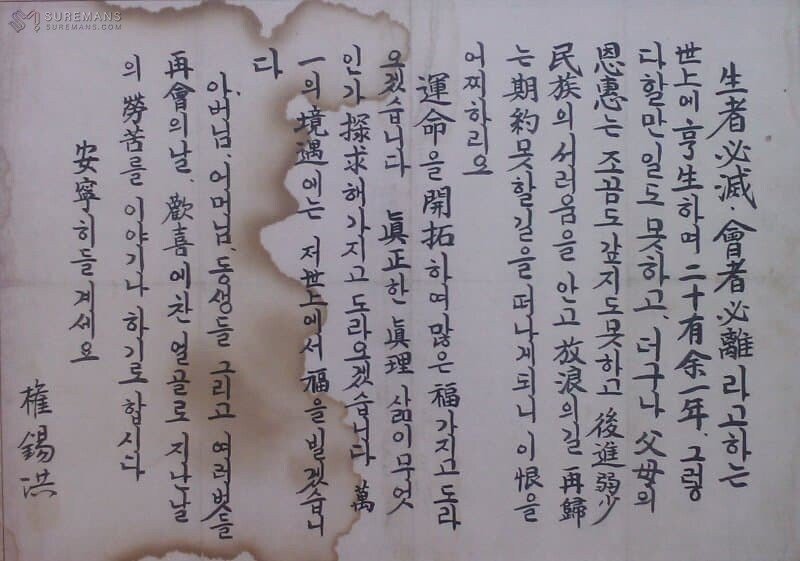 SUREMANS
SUREMANS.COM
生者必滅, 會者必離라고하는
世上에 亨生하며 二十有余一年, 그렇
다할만일도못하고, 더구나 父母의
恩惠는 조끔도갚지도못하고 後進弱少
民族의서러움을 안고 放浪의길 再歸
는期約못할길을떠나게되니 이恨을
어찌하리오
運命을開拓하여많은 福가지고도라
오겠습니다 眞正한眞理 삶이무엇
인가 探求해가지고도라오겠습니다 萬
一의 境遇에는 저世上에서福을빌겠습니
다
아버님, 어머님, 동생들 그리고 여러벗들
再會의날, 歡喜에찬얼골로 지난날
의 勞苦를 이야기나 하기로합시다
安寧히들계세요
權錫洪